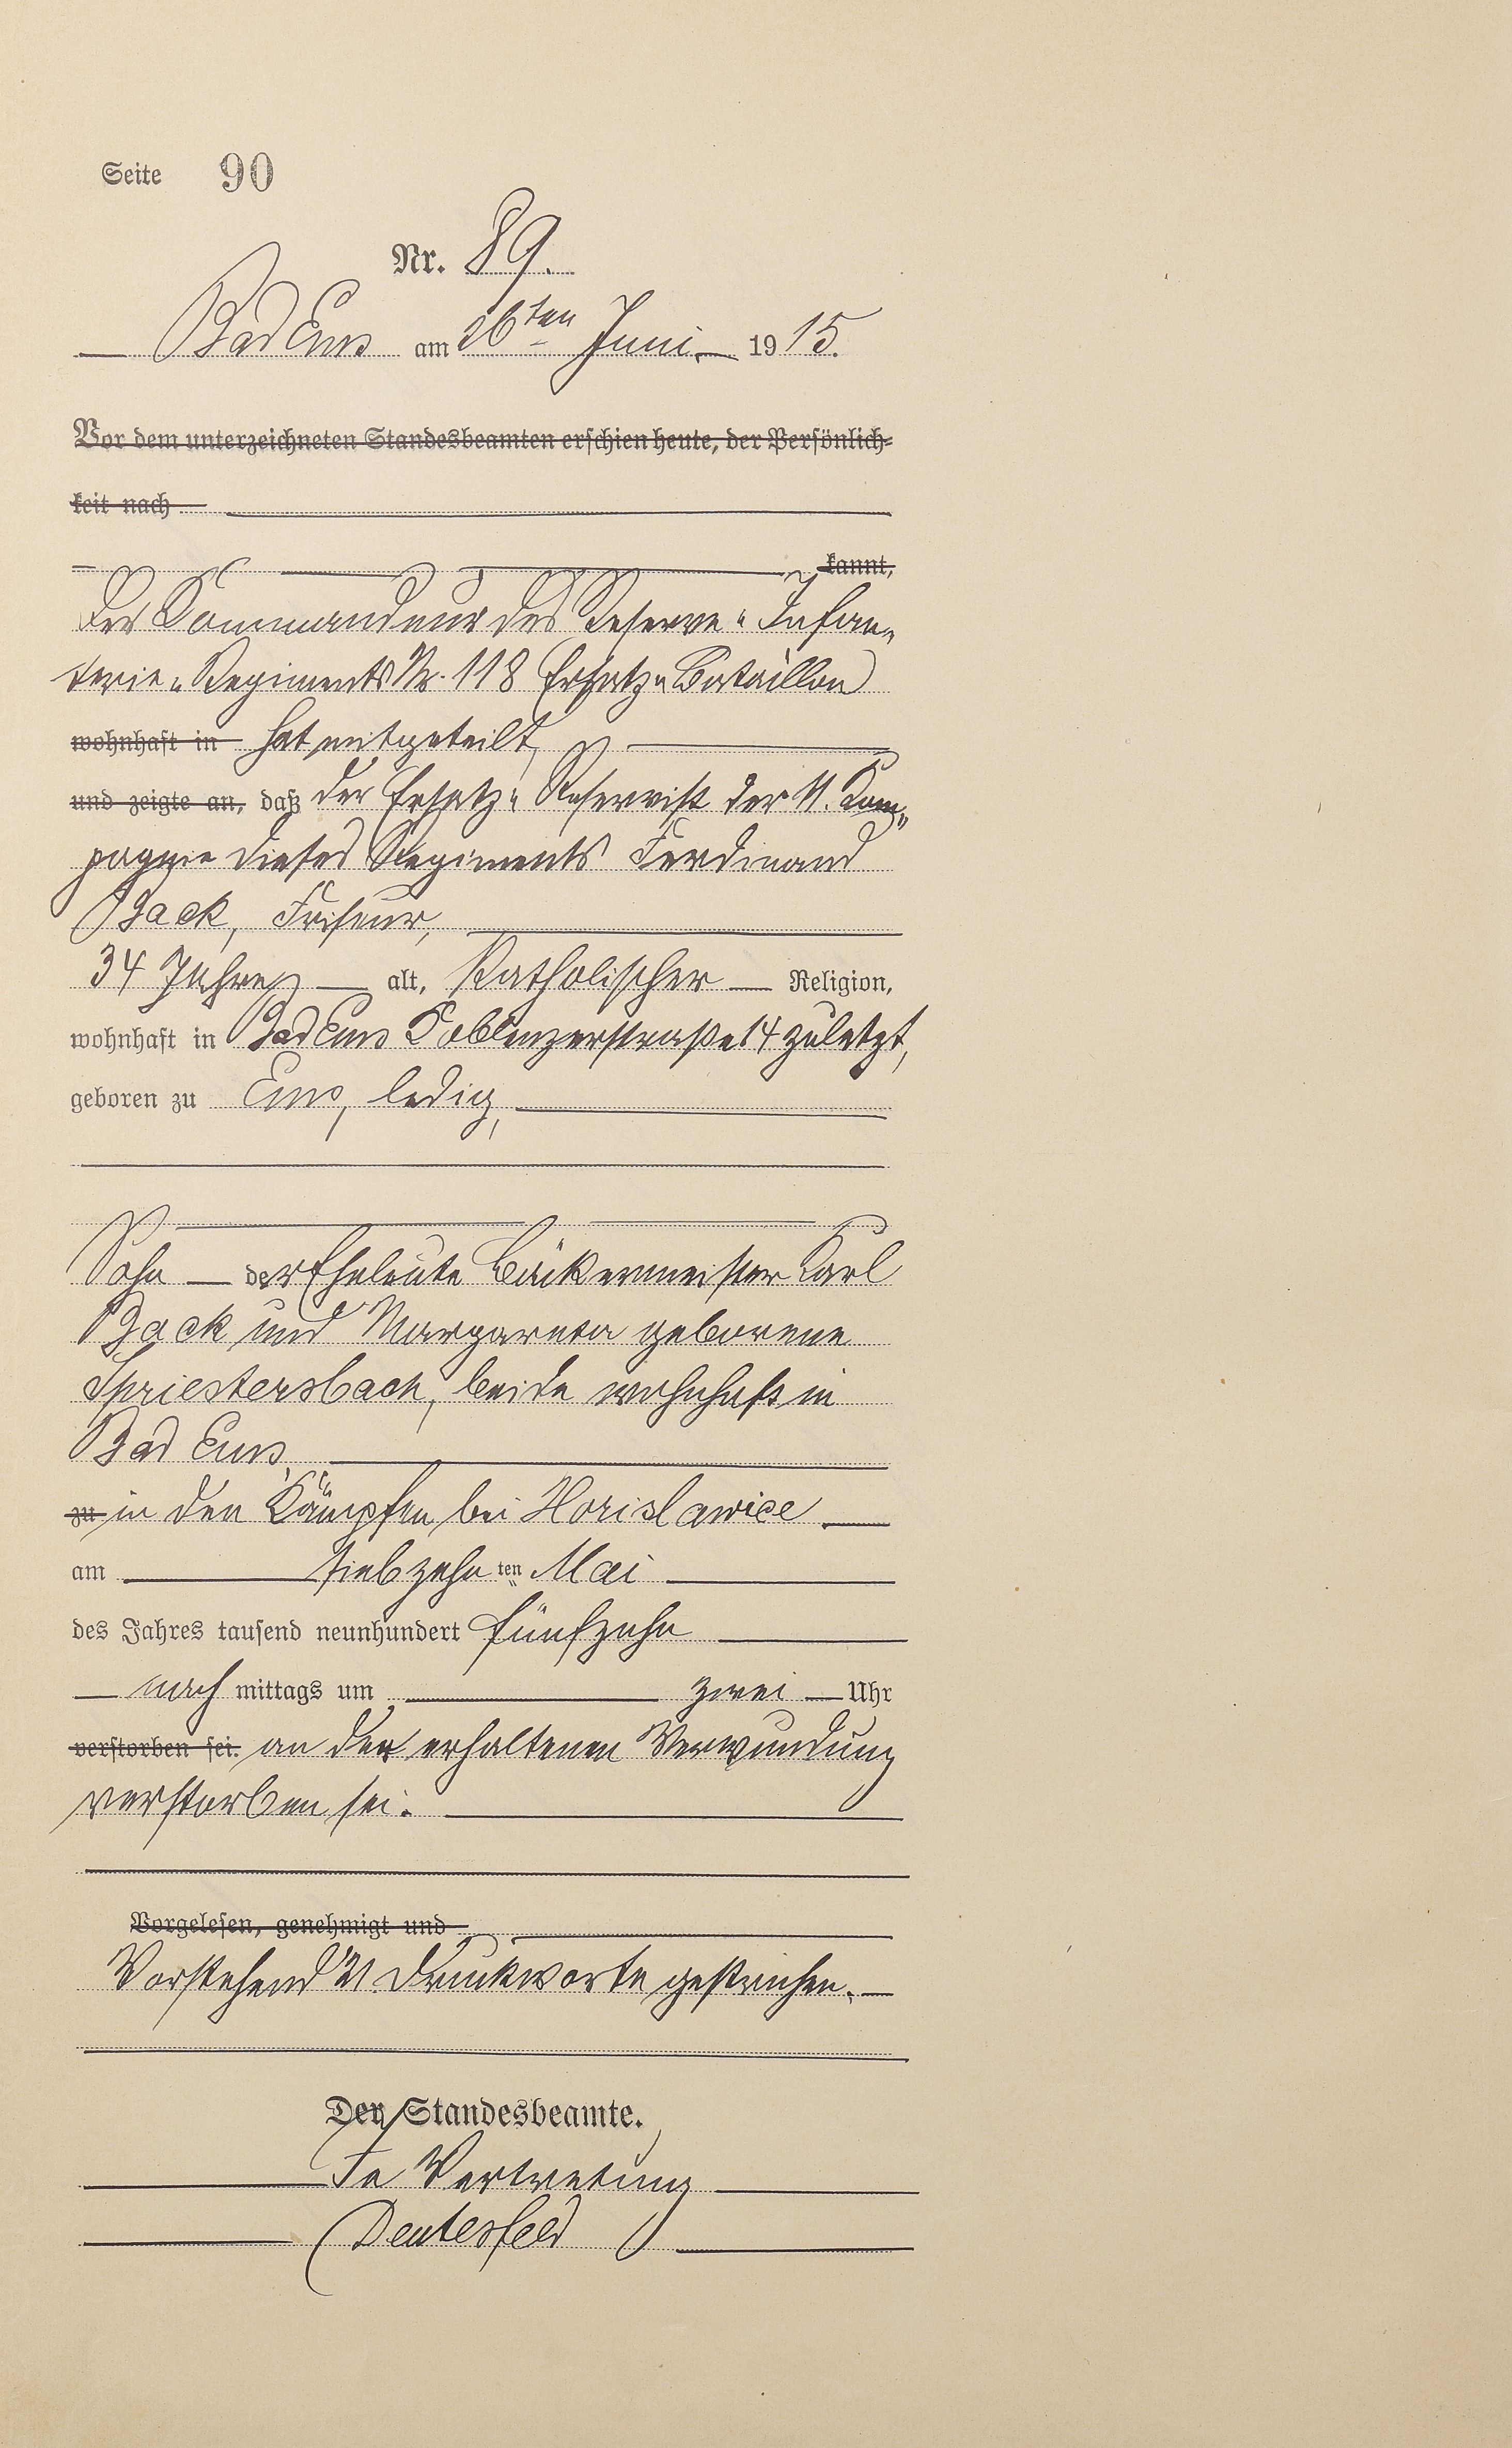 Seite 90
Nr. 89.
Bad Ems am 26ten Juni 1915.
Vor dem unterzeichneten Standesbeamten erschien heute, der Persönlich-
keit nach
kannt,
Der Kommandeur des Reserve-Infan-
terie-Regiments Nr. 118 Ersatz-Bataillon
wohnhaft in hat mitgeteilt,
und zeigte an, daß der Ersatz-Reservist der 11. Kom-
pagnie dieses Regiments Ferdinand
Back, Friseur,
34 Jahre alt, Katholischer Religion,
wohnhaft in Bad Ems Koblenzerstraße 14 zuletzt,
geboren zu Ems, ledig,
Sohn der Eheleute Bäckermeister Karl
Back und Margareta geborene
Spriestersbach, beide wohnhaft in
Bad Ems,
zu in den Kämpfen bei Horislawice
am siebzehnten Mai
des Jahres tausend neunhundert fünfzehn
nachmittags um zwei Uhr
verstorben sei. an der erhaltenen Verwundung
verstorben sei.
Vorgelesen, genehmigt und
Vorstehend 21 Druckworte gestrichen.
Der Standesbeamte.
In Vertretung
Deutesfeld